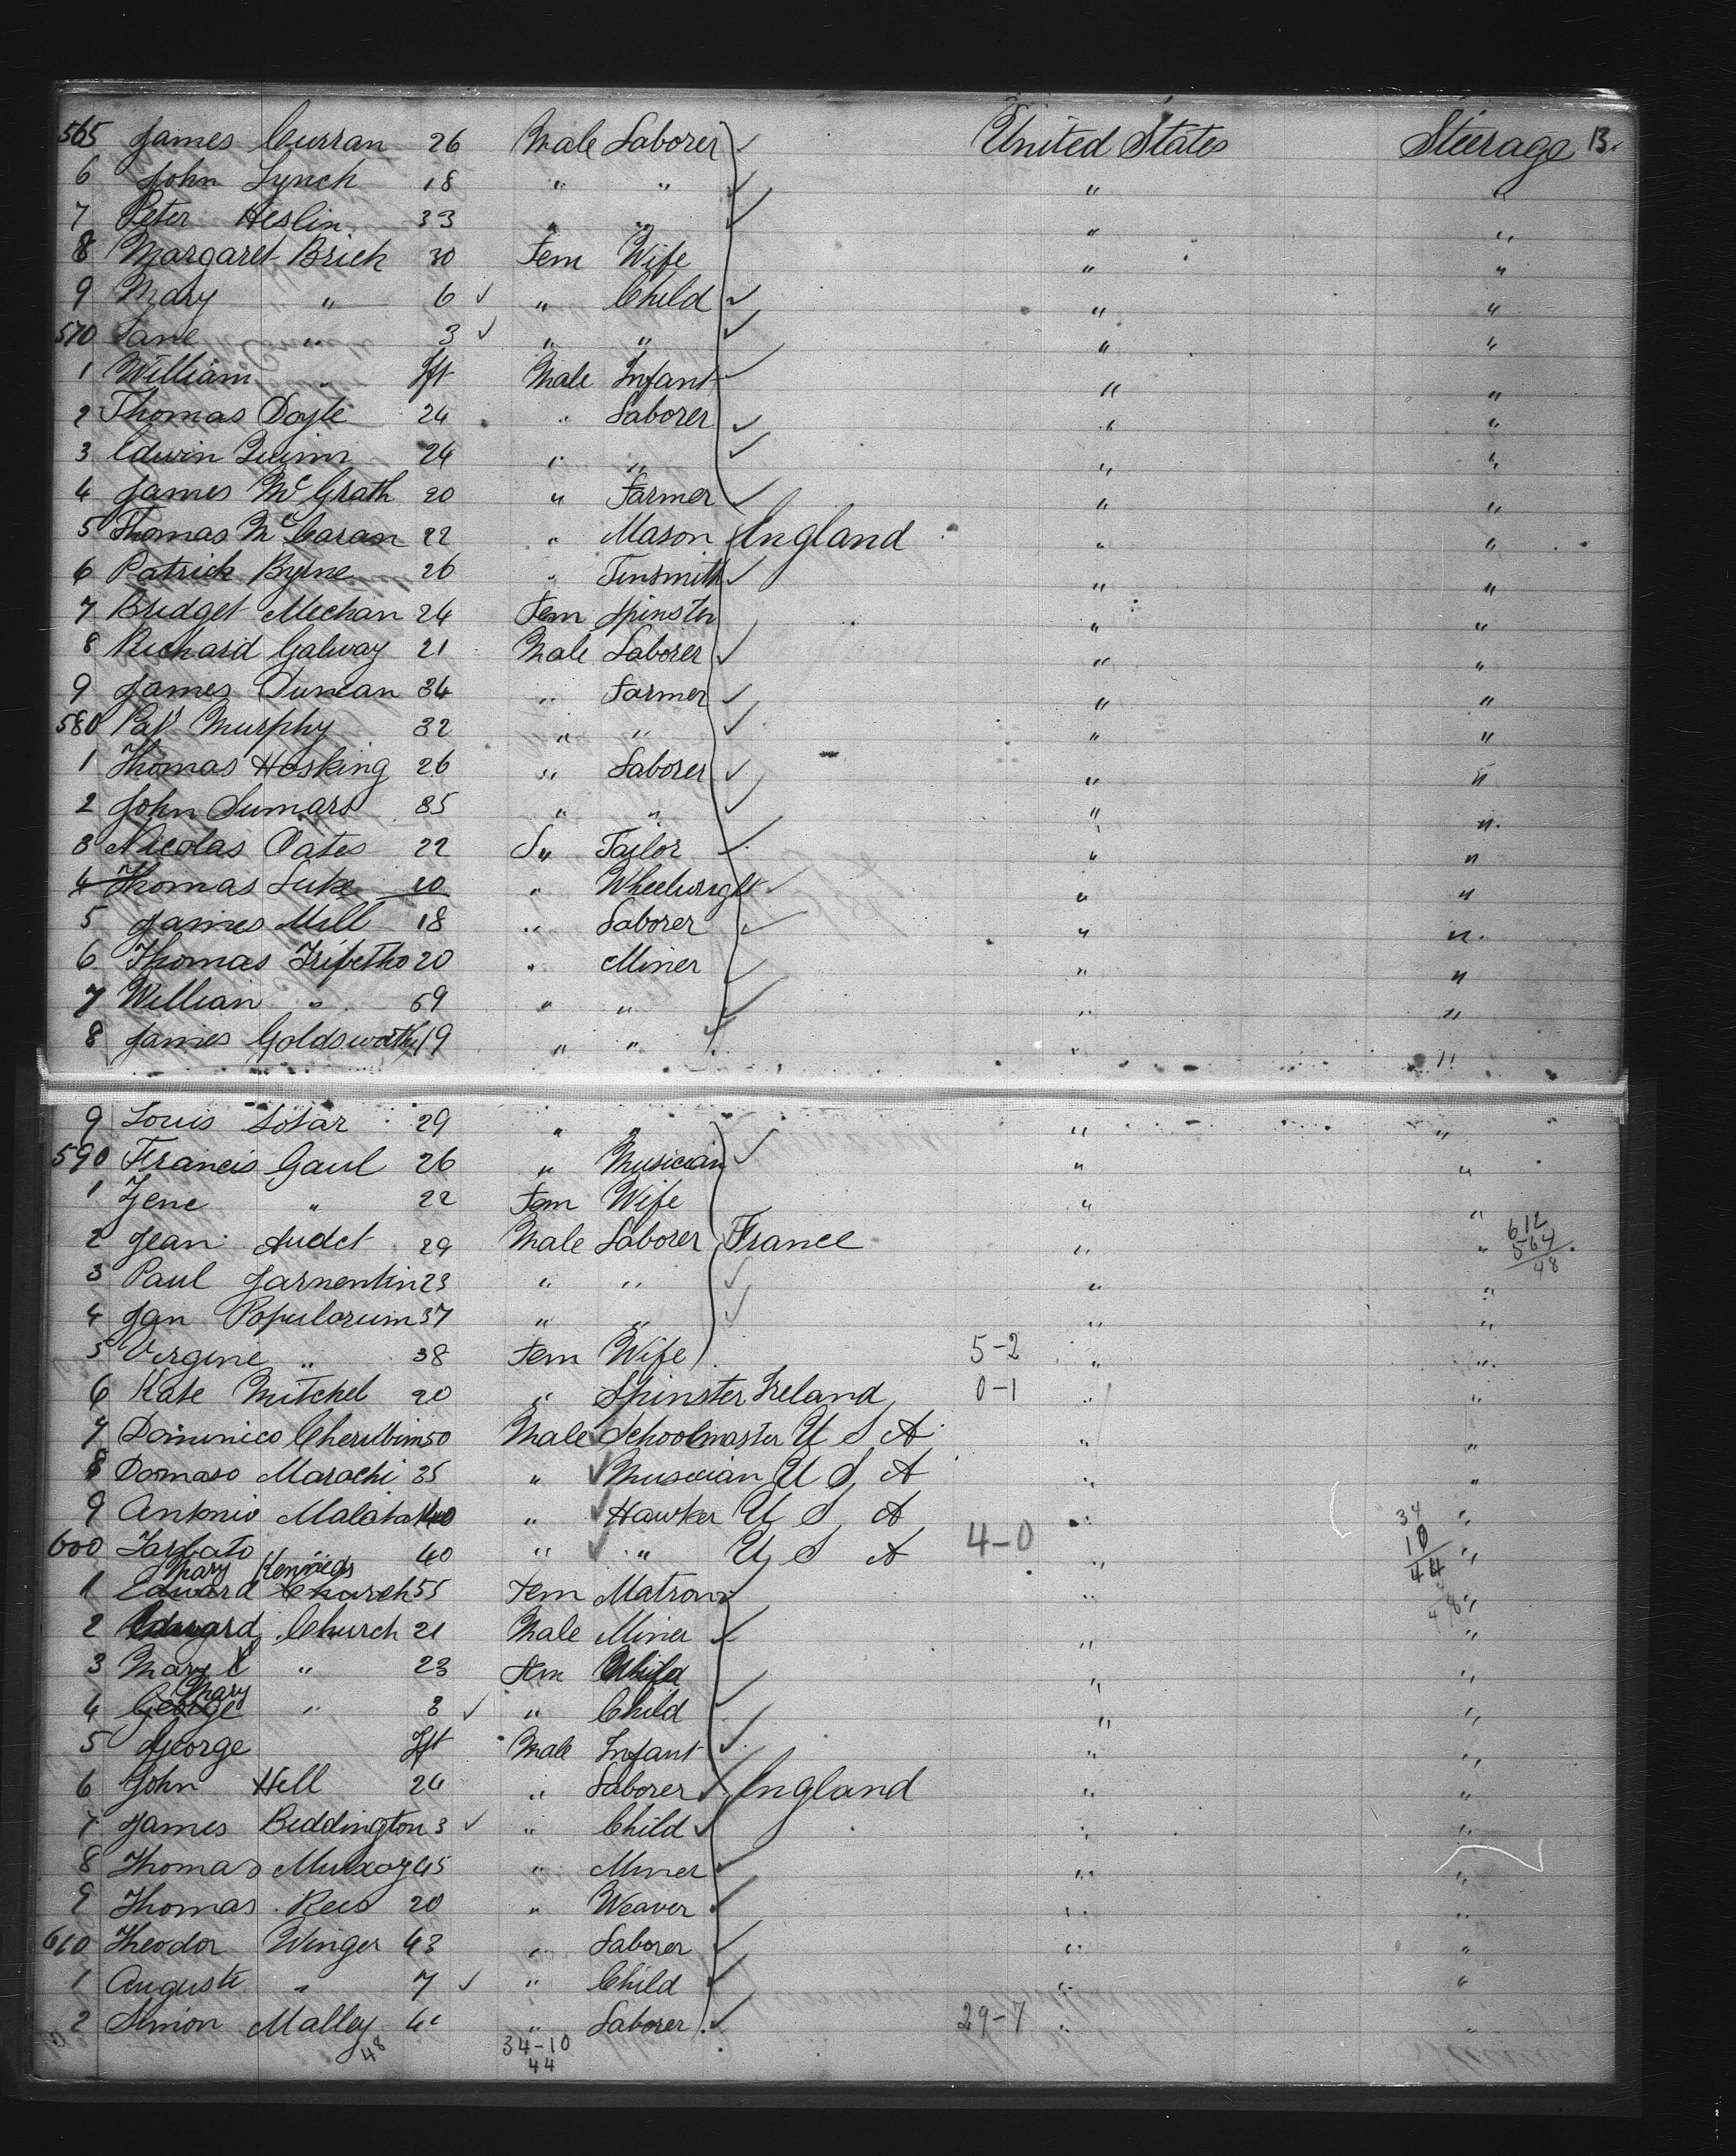 565 James Curran 26 Male Laborer United States Steerage 13.
6 John Lynch 18 " " " "
7 Peter Heslin 33 " " " "
8 Margaret Brich 30 Fem Wife " "
9 Mary " 6 " Child " "
570 Jane " 3 " " " "
1 William " Ift Male Infant " "
2 Thomas Doyle 24 " Laborer " "
3 Edwin Quinn 24 " " " "
4 James McGrath 20 " Farmer " "
5 Thomas McCaran 22 " Mason England " "
6 Patrick Byrne 26 " Tinsmith " "
7 Bridget Mechan 24 Fem Spinster " "
8 Richard Galway 21 Male Laborer " "
9 James Duncan 34 " Farmer " "
580 Pat Murphy 32 " " " "
1 Thomas Hosking 26 " Laborer " "
2 John 35 " " " "
3 Nicolas Oates 22 " Tailor " "
4 Thomas Luke 20 " Wheelwright " "
5 James Mill 18 " Laborer " "
6 Thomas 20 " Miner " "
7 William " 59 " " " "
8 James Goldsworthy 19 " " " "
9 Louis Losar 29 " " " "
590 Francis Gaul 26 " Musician " "
1 " 22 Fem Wife " "
2 Jean Audet 29 Male Laborer France " " 612
564
48
3 Paul Jarnentin 23 " " " "
4 Jan Popularum 37 " " " "
5 Virgine " 38 Fem Wife 5-2 " "
6 Kate Mitchel 20 " Spinster Ireland 0-1 " "
7 Dominico Cherubim 50 Male Schoolmaster U S A " "
8 Domaso Marochi 35 " Musician U S A " "
9 Antonio 40 " Hawker U S A " "
34
10
44
48
600 40 " " U S A 4-0 " "
Mary Kennedy
1 Edward Church 55 Fem Matron " "
2 Edward Church 21 Male Miner " "
3 Mary " 23 Fem " "
Mary
4 George " 3 " Child " "
5 George Ift Male Infant " "
6 John Hill 24 " Laborer England " "
7 James Beddington 3 " Child " "
8 Thomas 45 " Miner " "
9 Thomas Rees 20 " Weaver " "
610 Theodor Winger 43 " Laborer " "
1 Auguste " 7 " Child " "
2 Simon Malley " Laborer 29-7 " "
48 34-10
44